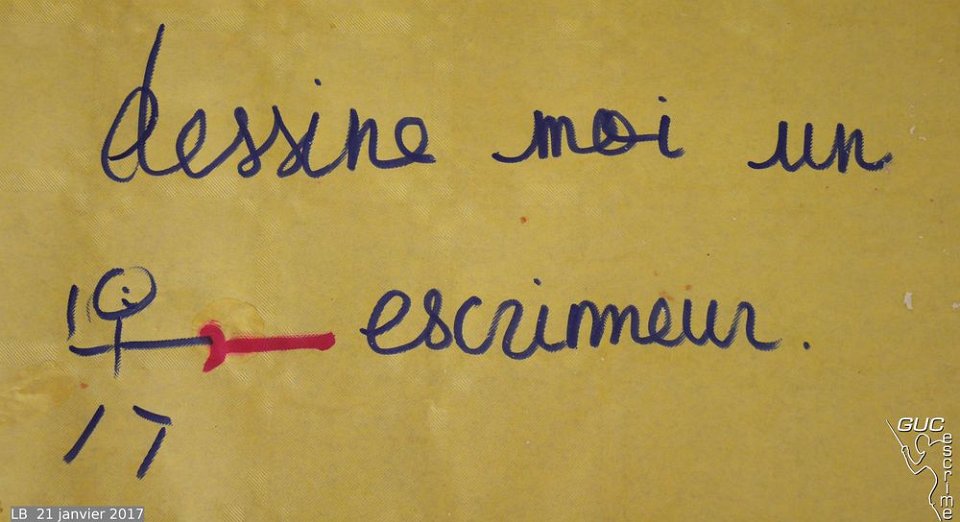 dessine moi un
escrimeur.
GUC
escrime
LB 21 janvier 2017